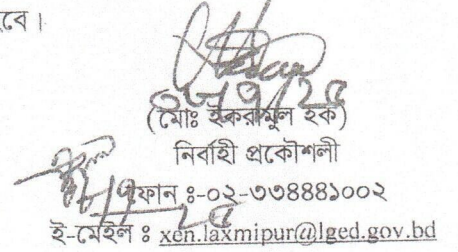 বে।
(মোঃ ইকরামুল হক)
নির্বাহী প্রকৌশলী
ফোন ঃ-০২-৩৩৪৪৪১০০২
ই-মেইল ঃ xen.laxmipur@lged.gov.bd